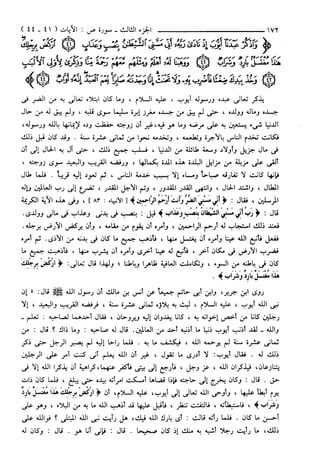 ١٧٢ الجزء الثالث - سورة ص : الآيات ( ٤١ - ٤٤ )
يذكر تعالى عبده ورسوله أيوب ، عليه السلام ، وما كان ابتلاه تعالى به من الضر فى
جسده وماله وولده ، حتى لم يبق من جسده مغرز إبرة سليما سوى قلبه ، ولم يبق له من حال
الدنيا شىء يستعين به على مرضه وما هو فيه، غير أن زوجته حفظت وده لإيمانها بالله ورسوله،
فكانت تخدم الناس بالأجرة وتطعمه ، وتخدمه نحوا من ثمانى عشرة سنة . وقد كان قبل ذلك
فى مال جزيل وأولاد وسعة طائلة من الدنيا ، فسلب جميع ذلك ، حتى آل به الحال إلى أن
ألقى على مزبلة من مزابل البلدة هذه المدة بكمالها ، ورفضه القريب والبعيد سوى زوجته ،
فإنها كانت لا تفارقه صباحا ومساء إلا بسبب خدمة الناس ، ثم تعود إليه قريبا. فلما طال
المطال ، واشتد الحال ، وانتهى القدر المقدور ، وتم الأجل المقدر ، تضرع إلى رب العالمين وإله
المرسلين ، فقال : ﴿ أَنِّي مَسَّنِيَ الضُّرُّ وَأَنتَ أَرْحَمُ الرَّاحِمِينَ ﴾ [الأنبياء : ٨٣] ، وفى هذه الآية الكريمة
قال : ﴿ رب أَنِّي مَسَّنِيَ الشَّيْطَانُ بِنُصْبٍ وَعَذَابٍ ﴾ قيل : بنصب فى بدنى وعذاب فى مالى وولدى.
فعند ذلك استجاب له أرحم الراحمين ، وأمره أن يقوم من مقامه ، وأن يركض الأرض برجله.
ففعل فأنبع الله عينا وأمره أن يغتسل منها ، فأذهب جميع ما كان فى بدنه من الأذى. ثم أمره
فضرب الأرض فى مكان آخر ، فأنبع له عينا أخرى وأمره أن يشرب منها ، فأذهبت جميع ما
كان فى باطنه من السوء ، وتكاملت العافية ظاهرا وباطنا ؛ ولهذا قال تعالى: ﴿ ارْكُضْ بِرِجْلِكَ
هَذَا مُغْتَسَلٌ بَارِدٌ وَشَرَابٌ ﴾ .
روى ابن جرير وابن أبى حاتم جميعا عن أنس بن مالك أن رسول الله ﷺ قال: « إن
نبى الله أيوب ، عليه السلام ، لبث به بلاؤه ثمانى عشرة سنة ، فرفضه القريب والبعيد ، إلا
رجلين كانا من أخص إخوانه به ، كانا يغدوان إليه ويروحان ، فقال أحدهما لصاحبه : تعلم -
والله - لقد أذنب أيوب ذنبا ما أذنبه أحد من العالمين. قال له صاحبه : وما ذاك ؟ قال : من
ثمانى عشرة سنة لم يرحمه الله ، فيكشف ما به . فلما راحا إليه لم يصبر الرجل حتى ذكر
ذلك له . فقال أيوب: لا أدرى ما تقول ، غير أن الله يعلم أنى كنت أمر على الرجلين
يتنازعان، فيذكران الله ، عز وجل ، فأرجع إلى بيتى فأكفر عنهما، كراهية أن يذكرا الله إلا فى
حق . قال : وكان يخرج إلى حاجته فإذا قضاها أمسكت امرأته بيده حتى يبلغ ، فلما كان ذات
يوم أبطأ عليها ، وأوحى الله تعالى إلى أيوب، عليه السلام، أن ﴿ ارْكُضْ بِرِجْلِكَ هَذَا مُغْتَسَلٌ بَارِدٌ
وَشَرَابٌ ﴾ ، فاستبطأته ، فالتفتت تنظر ، فأقبل عليها قد أذهب الله ما به من البلاء ، وهو على
أحسن ما كان . فلما رأته قالت : أى بارك الله فيك، هل رأيت نبى الله هذا المبتلى ؟ فوالله على
ذلك، ما رأيت رجلا أشبه به منك إذ كان صحيحا . قال : فإنى أنا هو . قال : وكان له